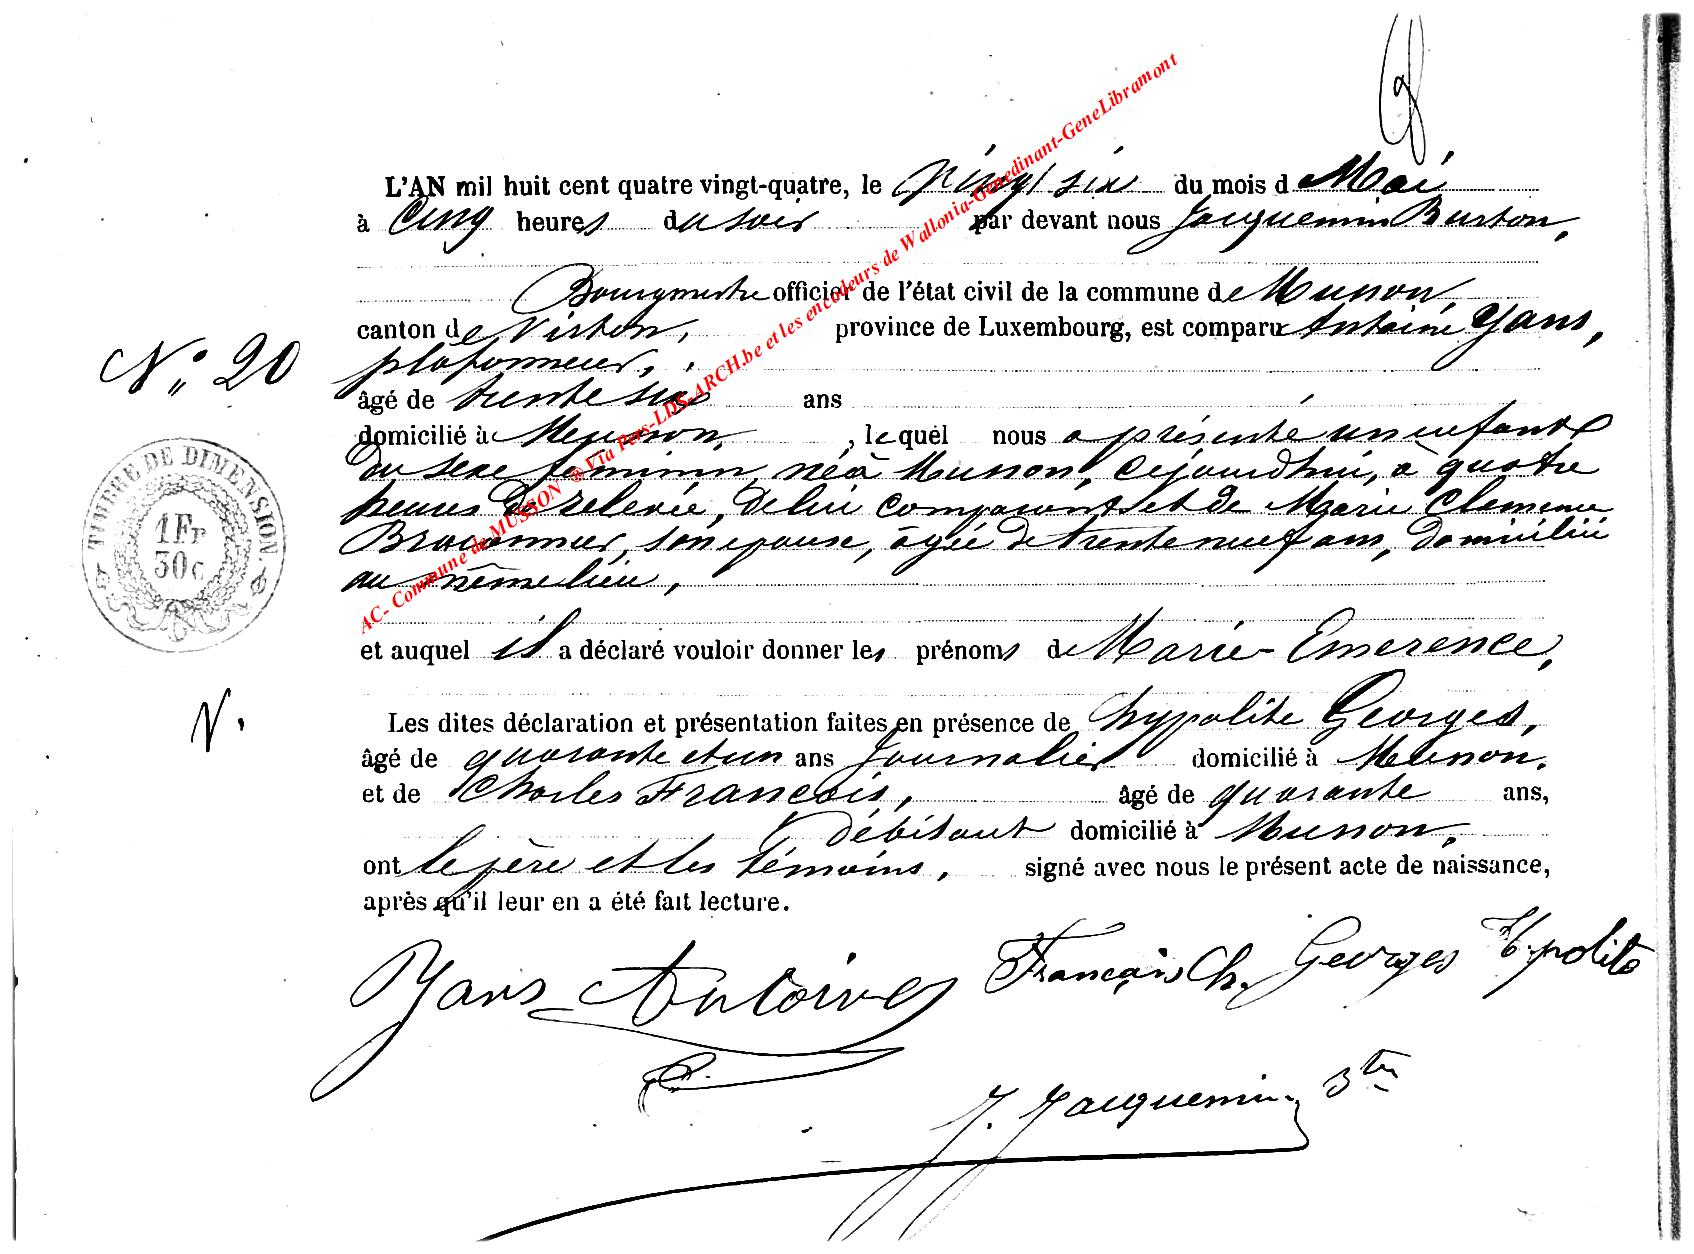 L'AN mil huit cent quatre vingt-quatre, le Vingt six du mois d Mai
à Cinq heures du soir par devant nous Jacquemin Burton,
Bourgmestre officier de l'état civil de la commune de Musson,
canton de Virton, province de Luxembourg, est comparu Antoine Yans,
plafonneur,
N° 20
âgé de trente six ans
domicilié à Musson, , lequel nous a présenté un enfant
du sexe féminin, né à Musson, cejourdhui, à quatre
heures de relevée, de lui comparant et de Marie Clémence
Braconnier, son épouse, âgée de trente neuf ans, domiciliée
au même lieu,
TIMBRE DE DIMENSION
1 Fr
30 c
et auquel il a déclaré vouloir donner les prénoms de Marie-Emerence,
N.
Les dites déclaration et présentation faites en présence de hypolite Georges,
âgé de quarante et un ans Journalier domicilié à Musson,
et de Charles François, âgé de quarante ans,
débitant domicilié à Musson,
ont le père et les témoins, signé avec nous le présent acte de naissance,
après qu'il leur en a été fait lecture.
Yans Antoine François Ch. Georges Hypolite
J. Jacquemin
AC- Commune de MUSSON ® Via Pers-LDS-ARCH.be et les encodeurs de Wallonia-Genedinant-GeneLibramont